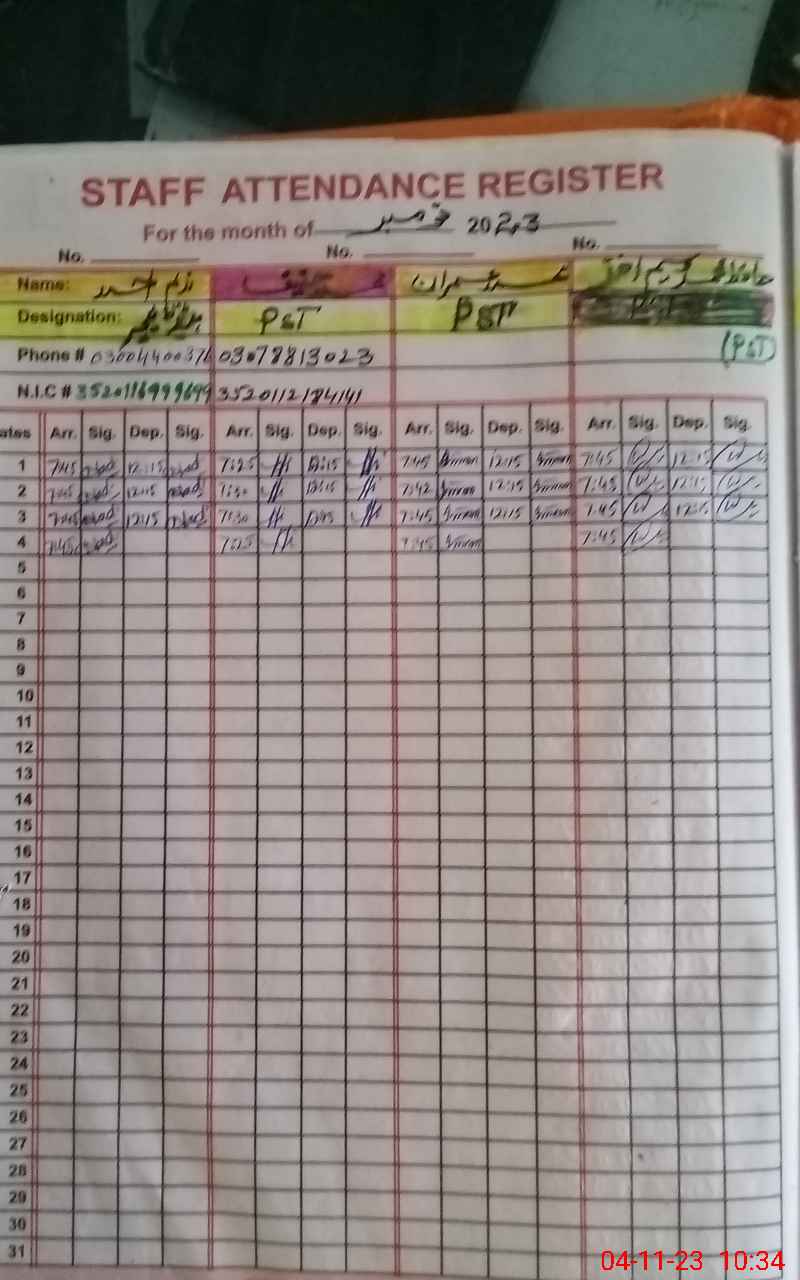 STAFF ATTENDANCE REGISTER
For the month of نومبر 2023
No. No. No.
Name: ندیم احمد محمد عمران
Designation: PST PST
Phone # 03004400376 03078813023 (PST)
N.I.C # 3520116999699 3520112184141
ates Arr. Sig. Dep. Sig. Arr. Sig. Dep. Sig. Arr. Sig. Dep. Sig. Arr. Sig. Dep. Sig.
1 7:45 12:15 7:25 12:15 7:45 Imran 12:15 Imran 7:45 12:15
2 7:45 12:15 7:30 12:15 7:42 Imran 12:15 Imran 7:45 12:15
3 7:45 12:15 7:30 7:45 Imran 12:15 Imran 7:45 12:15
4 7:45 7:25 7:45 Imran 7:45
5
6
7
8
9
10
11
12
13
14
15
16
17
18
19
20
21
22
23
24
25
26
27
28
29
30
31
04-11-23 10:34